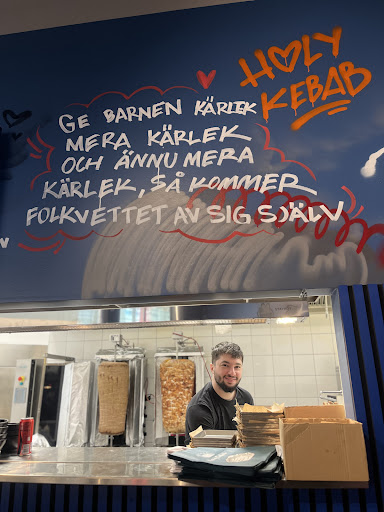 HOLY
KEBAB
GE BARNEN KÄRLEK
MERA KÄRLEK
OCH ÄNNU MERA
KÄRLEK, SÅ KOMMER
FOLKVETTET AV SIG SJÄLV